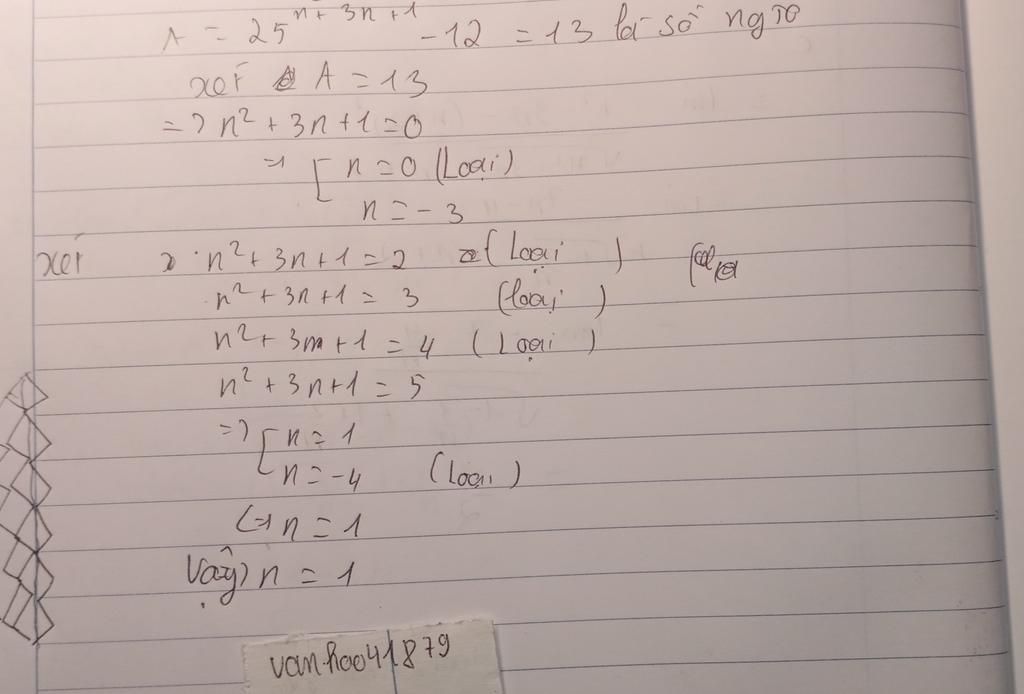 A = 25^{n + 3n + 1} - 12 = 13 là số ngto
xét A = 13
=> n² + 3n + 1 = 0
=> [ n = 0 (Loại)
n = - 3
xét n² + 3n + 1 = 2 (Loại)
n² + 3n + 1 = 3 (loại)
n² + 3n + 1 = 4 (Loại)
n² + 3n + 1 = 5
=> [ n = 1
n = -4 (Loại)
<=> n = 1
Vậy n = 1
vanhoo41879